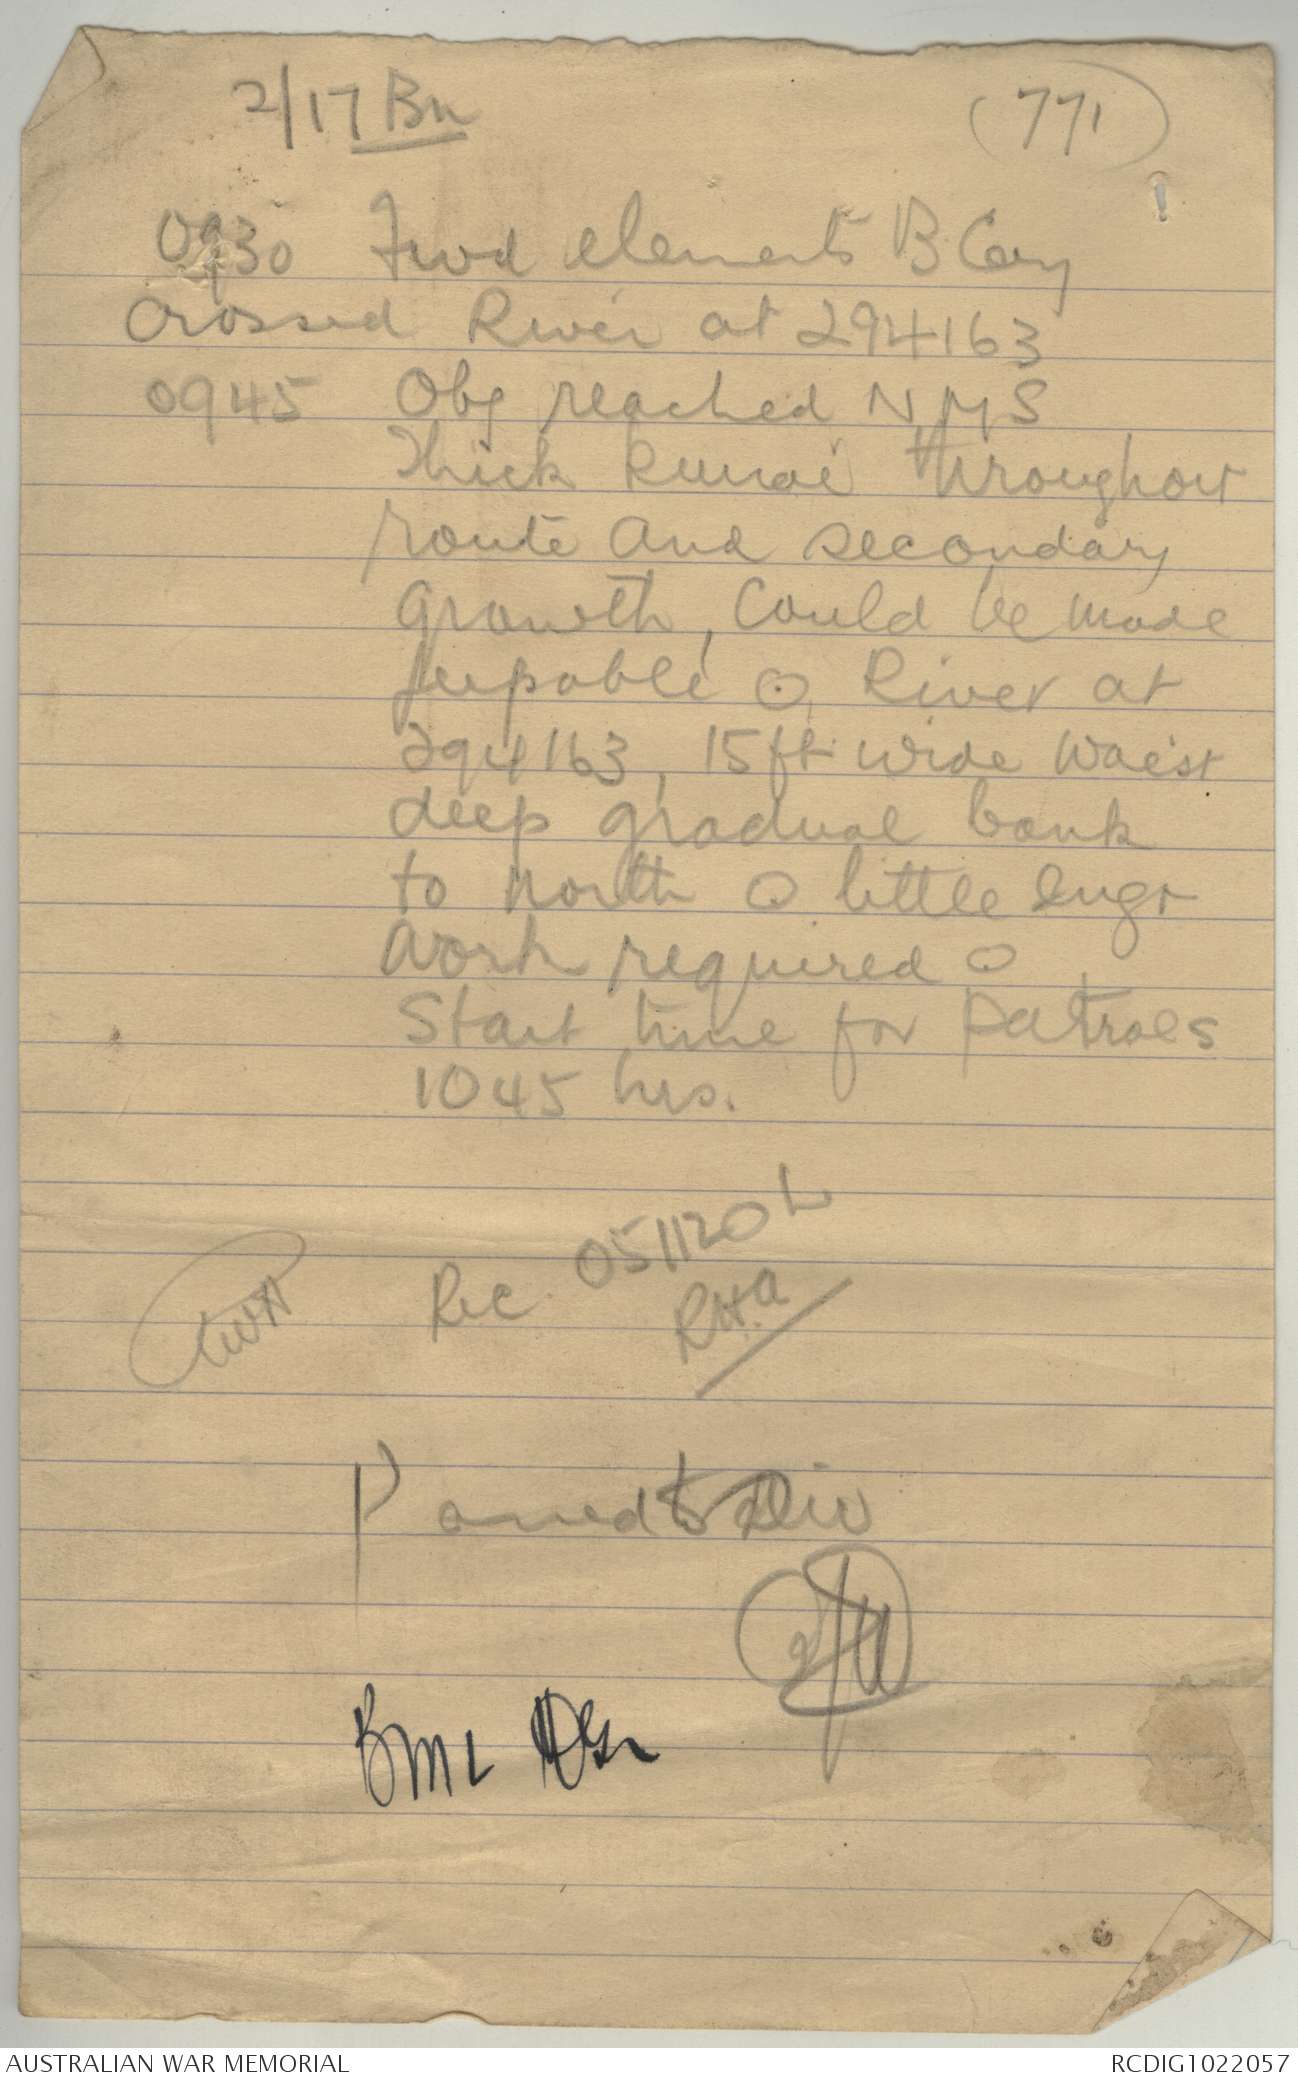 2/17 Bn
(771)
0930 Fwd elements B Coy
crossed River at 294163
0945 Obj reached NMS
Thick Kunai throughout
route and secondary
growth, Could be made
jeepable O River at
294163, 15ft wide Waist
deep gradual bank
to North O little Engr
Work required O
Start time for Patrols
1045 hrs.
Rec 051120 L
RHA
Passed to Div
BM L
AUSTRALIAN WAR MEMORIAL
RCDIG1022057